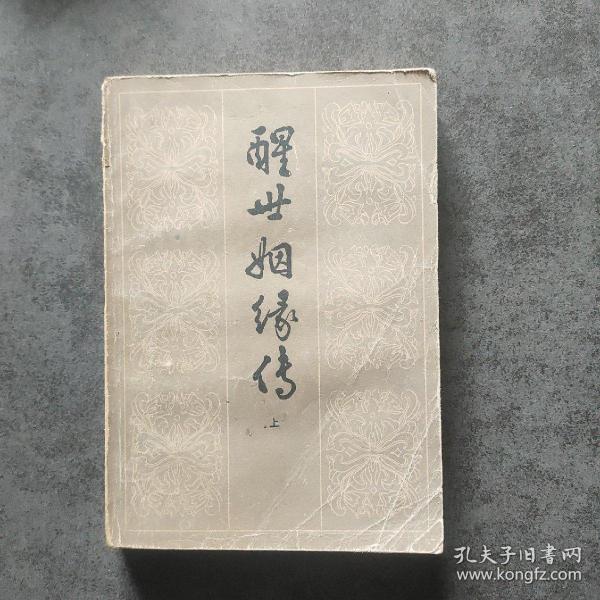 醒世姻缘传
上
孔夫子旧书网
www.kongfz.com